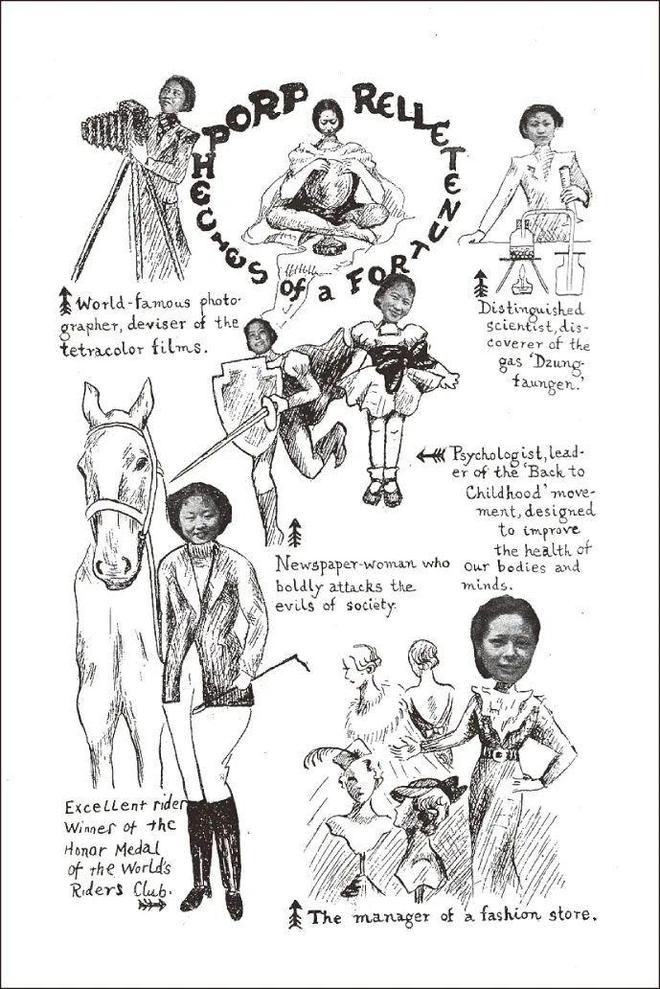 PROPHECIES
of a FORTUNETELLER
World-famous photo-
grapher, deviser of the
tetracolor films.
Distinguished
scientist, dis-
coverer of the
gas 'Dzung-
taungen.'
Psychologist, lead-
er of the 'Back to
Childhood' move-
ment, designed
to improve
the health of
our bodies and
minds.
Newspaper-woman who
boldly attacks the
evils of society.
Excellent rider
Winner of the
Honor Medal
of the World's
Riders Club.
The manager of a fashion store.